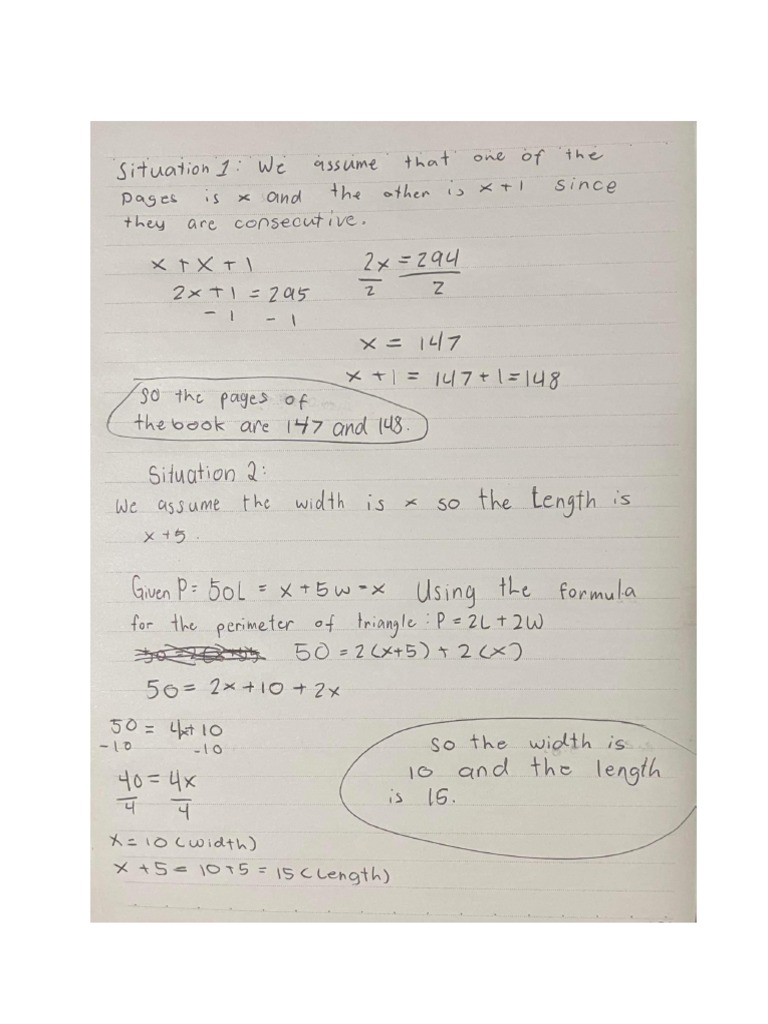 Situation 1: We assume that one of the
pages is x and the other is x + 1 since
they are consecutive.
x + x + 1
2x + 1 = 295
- 1 - 1
2x = 294
2 2
x = 147
x + 1 = 147 + 1 = 148
so the pages of
the book are 147 and 148.
Situation 2:
We assume the width is x so the length is
x + 5.
Given P = 50 L = x + 5 w = x Using the formula
for the perimeter of triangle: P = 2L + 2W
50 = 2(x+5) + 2(x)
50 = 2x + 10 + 2x
50 = 4x + 10
-10 -10
40 = 4x
4 4
x = 10 (width)
x + 5 = 10 + 5 = 15 (Length)
so the width is
10 and the length
is 15.